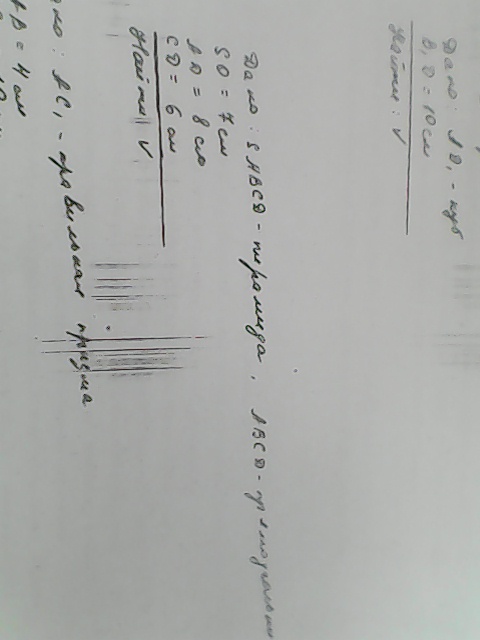 Дано: AD₁ - куб
B₁D = 10 см
Найти: V
Дано: SABCD - пирамида, ABCD - прямоугольник
SO = 7 см
AD = 8 см
CD = 6 см
Найти V
но: AC₁ - правильная призма
AB = 4 см